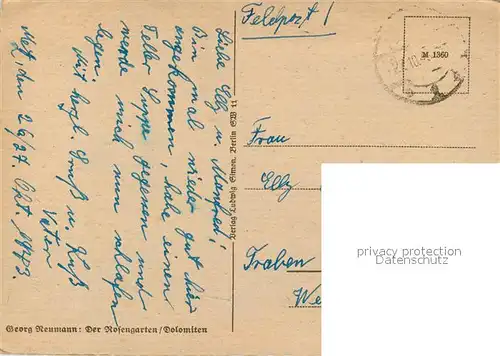 Feldpost!
M 1360
Liebe Elly u. Manfred!
Bin mal wieder gut hier
angekommen, habe einen
Teller Suppe gegessen und
werde mich nun schlafen
legen.
Mit herzl. Gruß u. Kuß
Vater
Metz, den 26/27. Okt. 1943.
Verlag Ludwig Simon, Berlin SW 11
Frau
Elly
Traben
We
privacy protection
Datenschutz
Georg Neumann: Der Rosengarten/Dolomiten